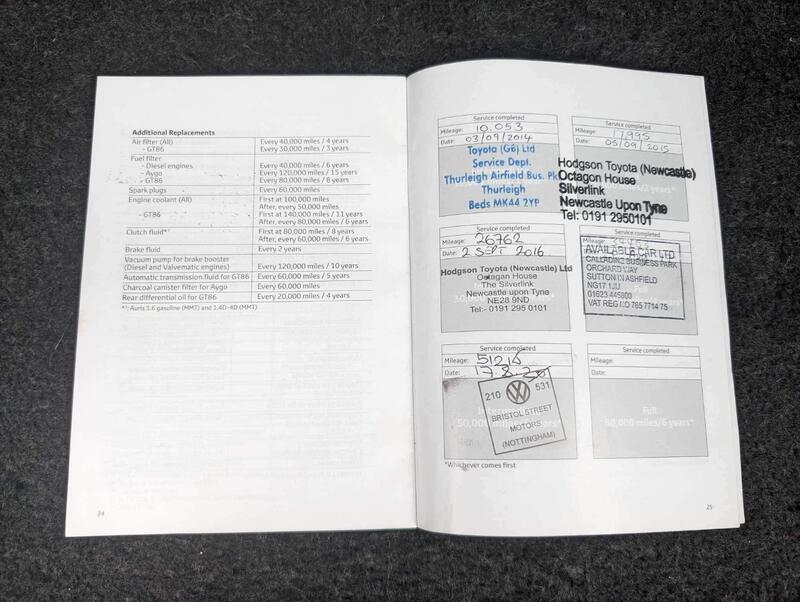 Additional Replacements
Air filter (All) Every 40,000 miles / 4 years
- GT86 Every 30,000 miles / 3 years
Fuel filter
- Diesel engines Every 40,000 miles / 6 years
- Aygo Every 120,000 miles / 15 years
- GT86 Every 80,000 miles / 8 years
Spark plugs Every 60,000 miles
Engine coolant (All) First at 100,000 miles
After, every 50,000 miles
- GT86 First at 140,000 miles / 11 years
After, every 80,000 miles / 6 years
Clutch fluid*¹ First at 80,000 miles / 8 years
After, every 60,000 miles / 6 years
Brake fluid Every 2 years
Vacuum pump for brake booster
(Diesel and Valvematic engines) Every 120,000 miles / 10 years
Automatic transmission fluid for GT86 Every 60,000 miles / 5 years
Charcoal canister filter for Aygo Every 60,000 miles
Rear differential oil for GT86 Every 20,000 miles / 4 years
*¹: Auris 1.6 gasoline (MMT) and 1.4D-4D (MMT)
24
Service completed
Mileage: 10,053
Date: 03/09/2014
Toyota (GB) Ltd
Service Dept.
Thurleigh Airfield Bus. Pk
Thurleigh
Beds MK44 2YP
Service completed
Mileage: 17,995
Date: 05/09/2015
Hodgson Toyota (Newcastle)
Octagon House
Silverlink
Newcastle Upon Tyne
Tel: 0191 2950101
Service completed
Mileage: 26762
Date: 2 SEPT 2016
Hodgson Toyota (Newcastle) Ltd
Octagon House
The Silverlink
Newcastle upon Tyne
NE28 9ND
Tel:- 0191 295 0101
Service completed
Mileage:
AVAILABLE CAR LTD
CALLADINE BUSINESS PARK
ORCHARD WAY
SUTTON IN ASHFIELD
NG17 1JU
01623 445800
VAT REG NO 765 7714 75
Service completed
Mileage: 51216
Date: 17.8.20
210 531
BRISTOL STREET
MOTORS
(NOTTINGHAM)
Service completed
Mileage:
Date:
Full
60,000 miles/6 years*
*Whichever comes first
25